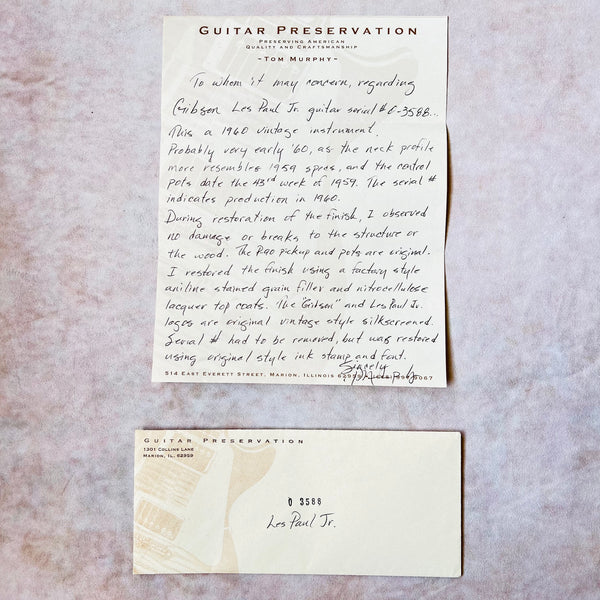 GUITAR PRESERVATION
PRESERVING AMERICAN
QUALITY AND CRAFTSMANSHIP
~TOM MURPHY~
To whom it may concern, regarding
Gibson Les Paul Jr. guitar serial # 0-3588...
This a 1960 vintage instrument.
Probably very early '60, as the neck profile
more resembles 1959 specs, and the control
pots date the 43rd week of 1959. The serial #
indicates production in 1960.
During restoration of the finish, I observed
no damage or breaks to the structure or
the wood. The P90 pickup and pots are original.
I restored the finish using a factory style
aniline stained grain filler and nitrocellulose
lacquer top coats. The "Gibson" and Les Paul Jr.
logos are original vintage style silkscreened.
Serial # had to be removed, but was restored
using original style ink stamp and font.
Sincely
514 EAST EVERETT STREET, MARION, ILLINOIS 62959
GUITAR PRESERVATION
1301 COLLINS LANE
MARION, IL. 62959
0 3588
Les Paul Jr.